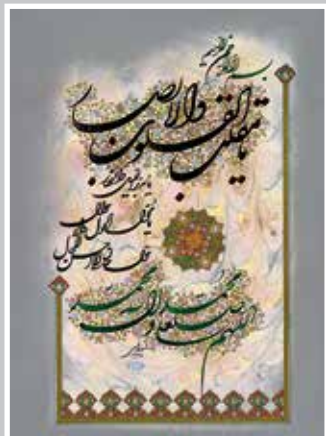 بسم الله الرحمن الرحیم
یا مقلب القلوب والابصار
یا مدبر اللیل والنهار
یا محول الحول والاحوال
حول حالنا الی احسن الحال
اللهم صل علی محمد و آل محمد